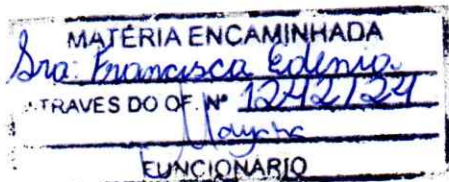 MATÉRIA ENCAMINHADA
Sra. Francisca Edênia
ATRAVES DO OF. Nº 1242/24
FUNCIONARIO